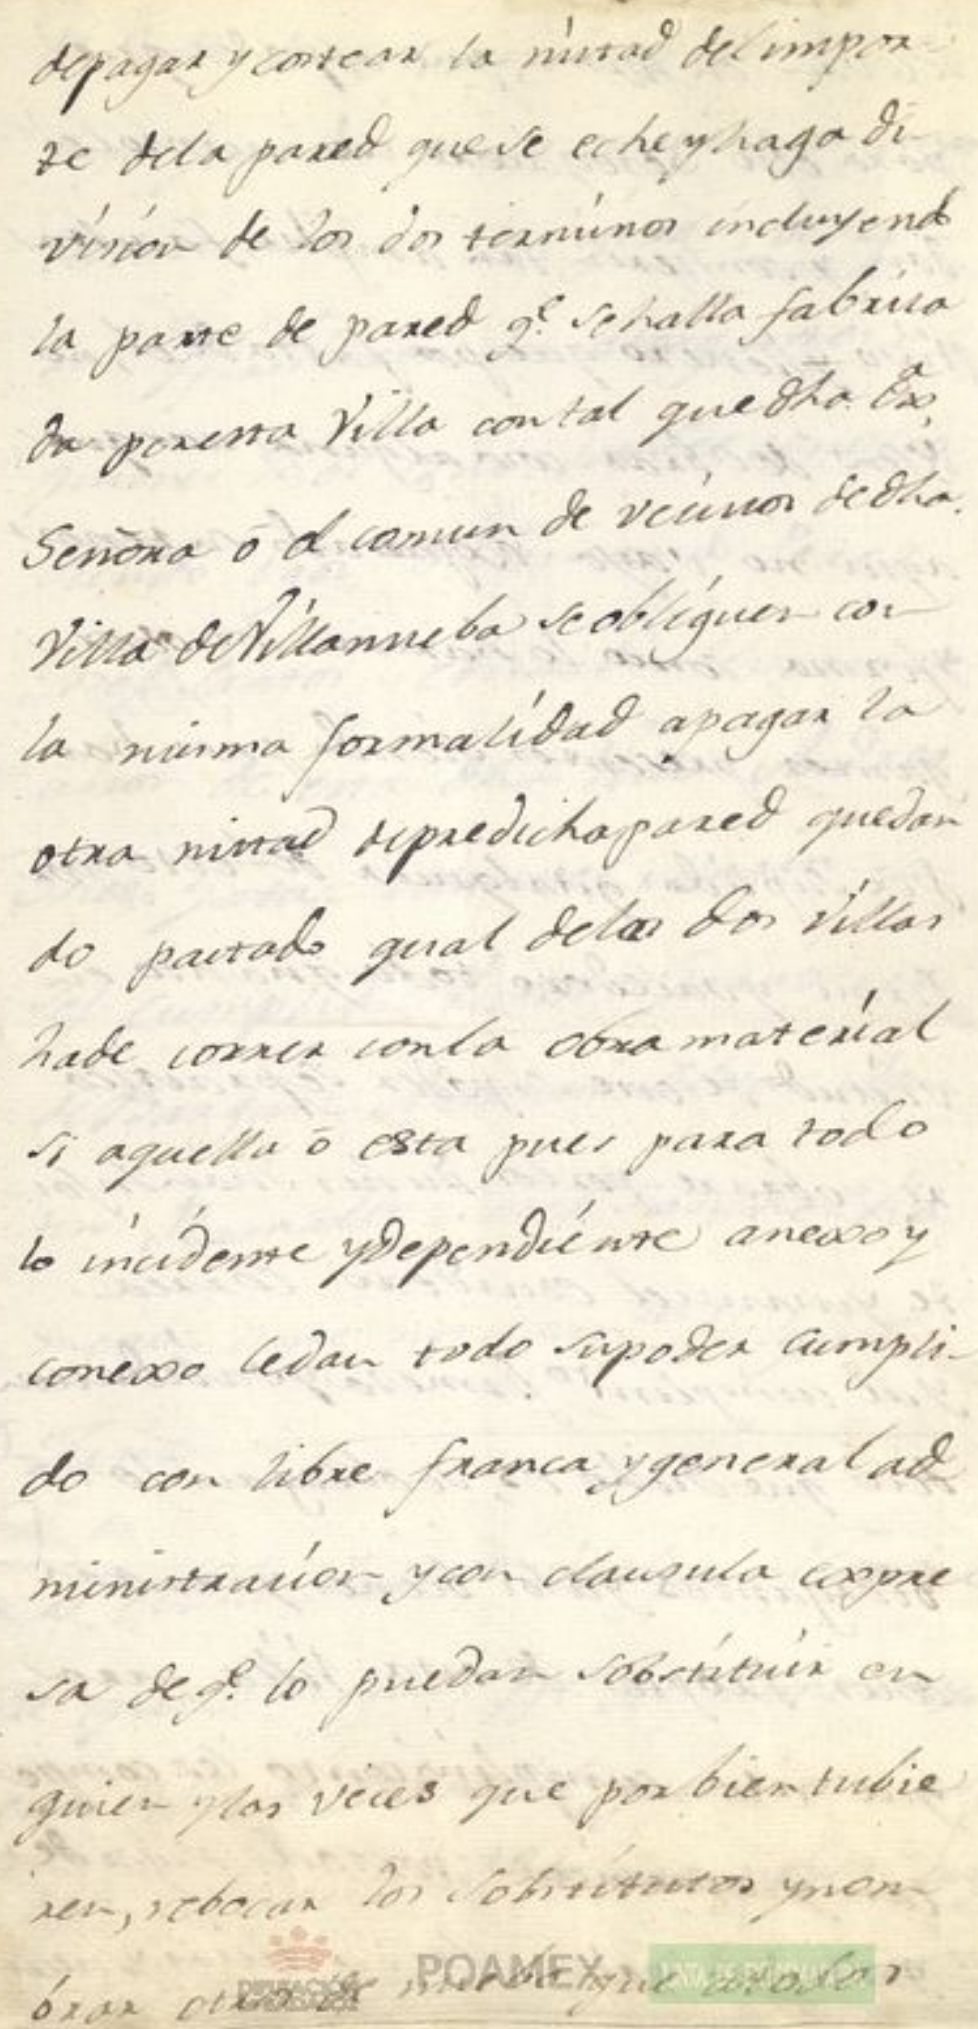 de pagar y costear la mitad del impor-
te dela pared que se eche y haga di-
vision de los dos terminos incluyendo
la parte de pared q.e se halla fabrica
da por esta Villa con tal que dha Exa.
Señora o el comun de vecinos de dha.
Villa de Villanueba se obliguen con
la misma formalidad a pagar la
otra mitad de predicha pared quedan
do pactado qual delas dos Villas
hade correr con la obra material
si aquella o esta pues para todo
lo incidente y dependiente anexo y
conexo le dan todo su poder cumpli-
do con libre franca y general ad
ministracion y con clausula expre
sa de q.e lo puedan sobstituir en
quien y las veces que por bien tubie
ren, rebocar los sobstitutos y nom
brar otros de nuebo que a todos
DIPUTACIÓN DE BADAJOZ
POAMEX
JUNTA DE EXTREMADURA